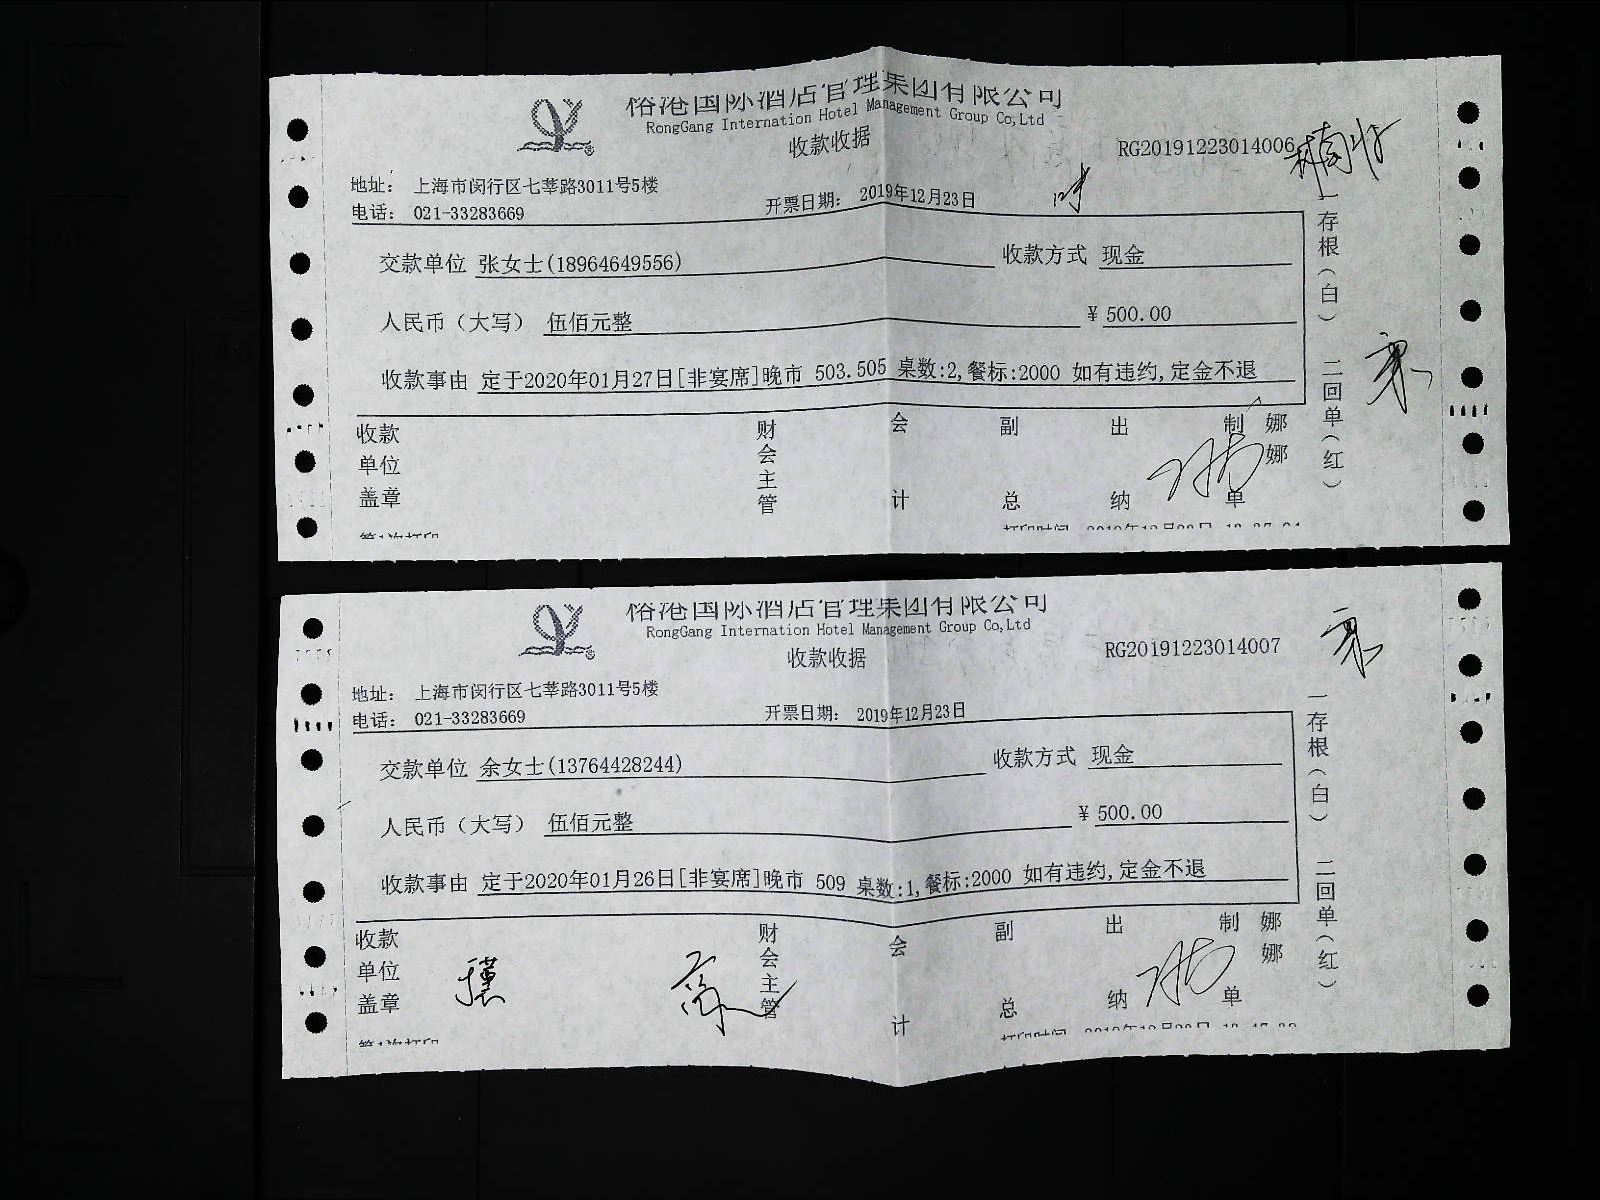 裕港国际酒店管理集团有限公司
RongGang Internation Hotel Management Group Co,Ltd
收款收据
RG20191223014006
地址： 上海市闵行区七莘路3011号5楼
电话： 021-33283669
开票日期： 2019年12月23日
交款单位 张女士(18964649556)
收款方式 现金
人民币（大写） 伍佰元整
¥ 500.00
收款事由 定于2020年01月27日[非宴席]晚市 503.505 桌数:2,餐标:2000 如有违约,定金不退
一存根（白） 二回单（红）
收款单位盖章
财会主管
会计
副总
出纳
制单
娜娜
第1次打印
裕港国际酒店管理集团有限公司
RongGang Internation Hotel Management Group Co,Ltd
收款收据
RG20191223014007
地址： 上海市闵行区七莘路3011号5楼
电话： 021-33283669
开票日期： 2019年12月23日
交款单位 余女士(13764428244)
收款方式 现金
人民币（大写） 伍佰元整
¥ 500.00
收款事由 定于2020年01月26日[非宴席]晚市 509 桌数:1,餐标:2000 如有违约,定金不退
一存根（白） 二回单（红）
收款单位盖章
财会主管
会计
副总
出纳
制单
娜娜
第1次打印